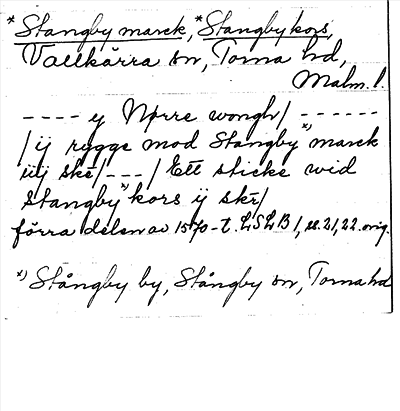 *Stangby marck, *Stangby kors,
Vallkärra sn, Torna hd,
Malm. l.
---- y Nørre wongh/ ------
/ij rygge mod Stangby *) marck
iiij skē/---/ Ett sticke wid
Stangby *) kors ij skē/
förra delen av 1570-t. LSLB 1, ss. 21, 22. orig.
*) Stångby by, Stångby sn, Torna hd